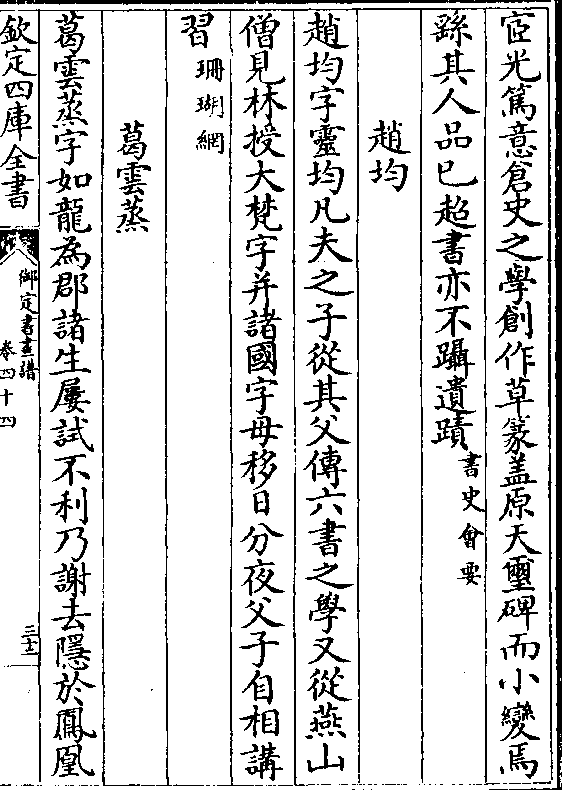 宧光篤意倉史之學創作草篆盖原天璽碑而小變焉
繇其人品已超書亦不躡遺蹟書史會要
趙均
趙均字靈均凡夫之子從其父傳六書之學又從燕山
僧見林授大梵字并諸國字母移日分夜父子自相講
習珊瑚網
葛雲蒸
葛雲蒸字如龍為郡諸生屢試不利乃謝去隱於鳳凰
欽定四庫全書
御定書畫譜
卷四十四